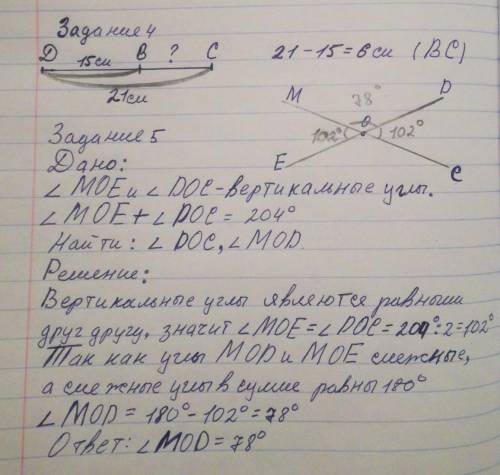 Задание 4
D B ? C
15см
21см
21-15=6см (BC)
M 78° D
102° O 102°
E C
Задание 5
Дано:
∠MOE и ∠DOC-вертикальные углы.
∠MOE+∠DOC=204°
Найти: ∠DOC, ∠MOD
Решение:
Вертикальные углы явлеются равными
друг другу, значит ∠MOE=∠DOC=204°:2=102°
Так как углы MOD и MOE смежные,
а смежные углы в сумме равны 180°
∠MOD=180°-102°=78°
Ответ: ∠MOD=78°